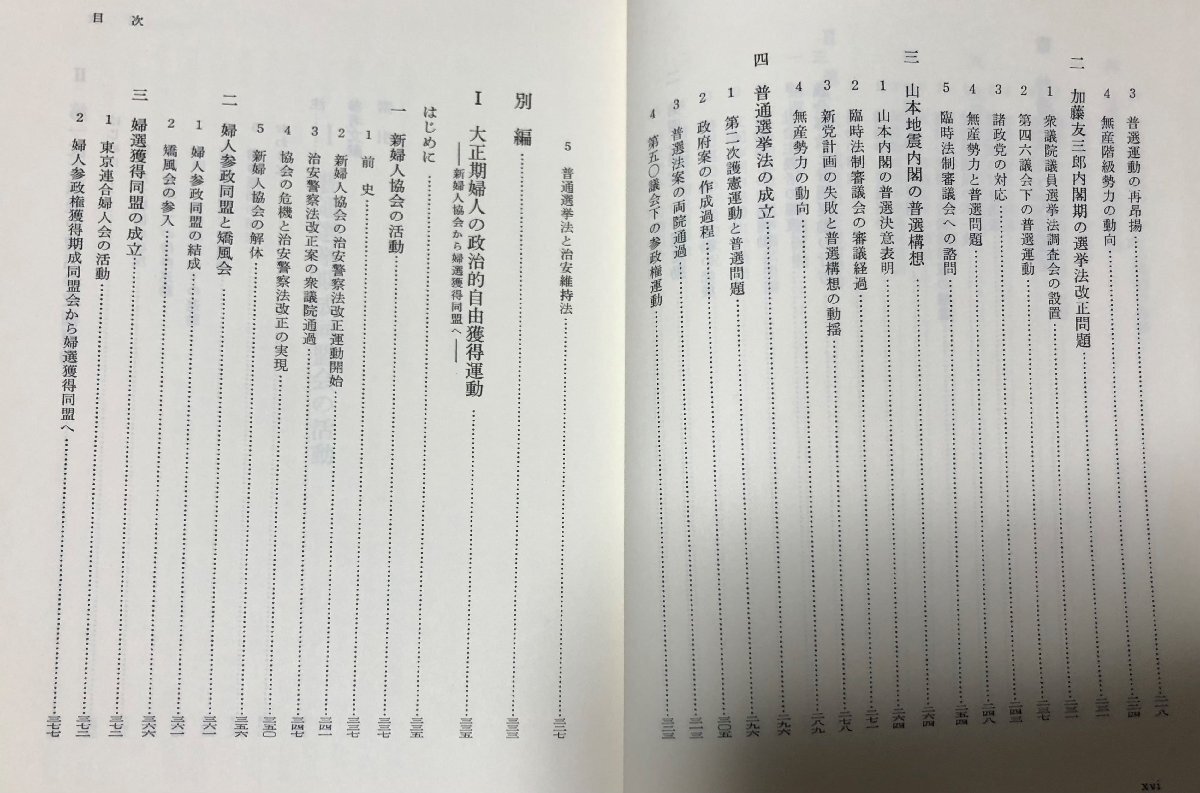 3 普選運動の再昂揚……二一八
4 無産階級勢力の動向……二二四
二 加藤友三郎内閣期の選挙法改正問題……二三一
1 衆議院議員選挙法調査会の設置……二三一
2 第四六議会下の普選運動……二三七
3 諸政党の対応……二四三
4 無産勢力と普選問題……二四八
5 臨時法制審議会への諮問……二五四
三 山本地震内閣の普選構想……二六四
1 山本内閣の普選決意表明……二六四
2 臨時法制審議会の審議経過……二七一
3 新党計画の失敗と普選構想の動揺……二七八
4 無産勢力の動向……二八九
四 普通選挙法の成立……二九六
1 第二次護憲運動と普選問題……二九六
2 政府案の作成過程……三〇五
3 普選法案の両院通過……三一三
4 第五〇議会下の参政権運動……三二三
xvi
目 次
5 普通選挙法と治安維持法……三二七
別 編……三三三
Ⅰ 大正期婦人の政治的自由獲得運動……三三五
――新婦人協会から婦選獲得同盟へ――
はじめに……三三五
一 新婦人協会の活動……三三七
1 前 史……三三七
2 新婦人協会の治安警察法改正運動開始……三四一
3 治安警察法改正案の衆議院通過……三四七
4 協会の危機と治安警察法改正の実現……三五〇
5 新婦人協会の解体……三五六
二 婦人参政同盟と矯風会……三六一
1 婦人参政同盟の結成……三六一
2 矯風会の参入……三六六
三 婦選獲得同盟の成立……三七二
1 東京連合婦人会の活動……三七二
2 婦人参政権獲得期成同盟会から婦選獲得同盟へ……三七七